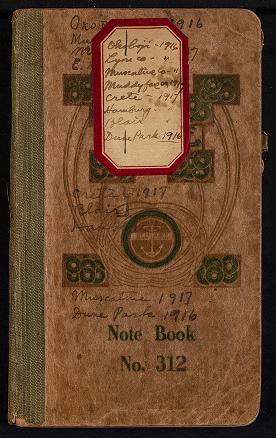 Okoboji 1916
Mus
M 1917
E.
Okoboji - 1916
Lyon co - "
Muscatine co - "
Muddy 1917
Crete - 1917
Hamburg -
Blair "
Dune Park 1916
Crete - 1917
Blair
Ham
Muscatine 1917
Dune Park 1916
Note Book
No. 312